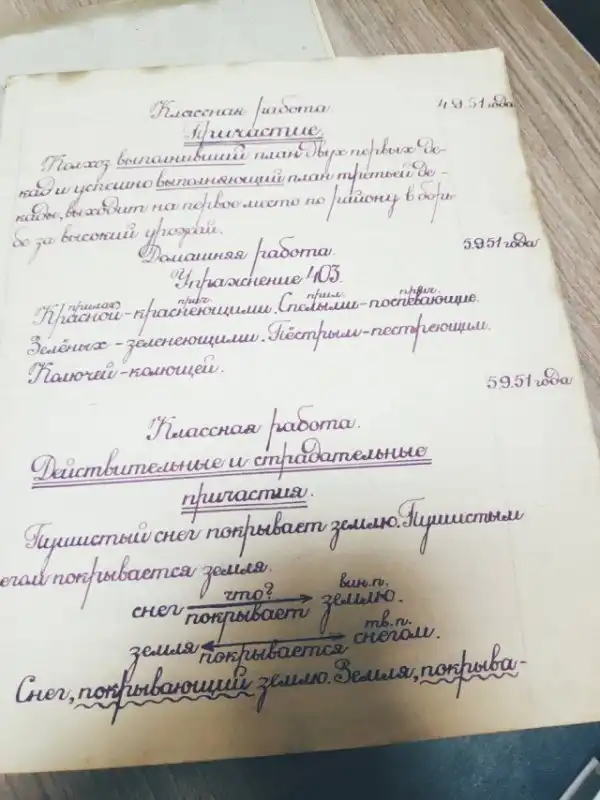 Классная работа. 4.9.51 года
Причастие.
Колхоз выполнивший план двух первых де-
кад и успешно выполняющий план третьей де-
кады, выходит на первое место по району в борь-
бе за высокий урожай.
Домашняя работа. 5.9.51 года
Упражнение 403.
прилаг. прич. прил. прич.
Красной-краснеющими. Спелыми-поспевающие.
Зелёных-зеленеющими. Пёстрым-пестреющим.
Колючей-колющей.
5.9.51 года
Классная работа.
Действительные и страдательные
причастия.
Пушистый снег покрывает землю. Пушистым
егом покрывается земля.
что? вин.п.
снег покрывает землю.
тв.п.
земля покрывается снегом.
Снег, покрывающий землю. Земля, покрыва-